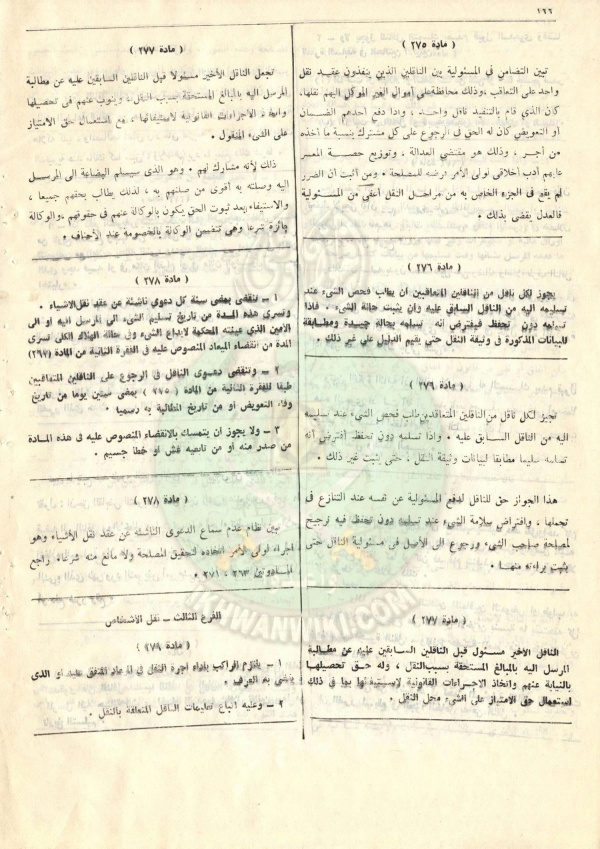 ١٦٦
( مادة ٢٧٥ )
تبين التضامن في المسئولية بين الناقلين الذين ينفذون عقد نقل
واحد على التعاقب ، وذلك محافظة على أموال الغير الموكل اليهم نقلها ،
كان الذي قام بالتنفيذ ناقل واحد ، واذا دفع أحدهم الضمان
أو التعويض كان له الحق في الرجوع على كل مشترك بنسبة ما أخذه
من أجر ، وذلك هو مقتضى العدالة ، وتوزيع حصة المعسر
عليهم أدب أخلاقي لولى الأمر فرضه للمصلحة . ومن أثبت ان الضرر
لم يقع في الجزء الخاص به من مراحل النقل أعفى من المسئولية
فالعدل يقضى بذلك .
( مادة ٢٧٦ )
يجوز لكل ناقل من الناقلين المتعاقبين أن يطالب فحص الشيء عند
تسليمه اليه من الناقل السابق عليه وان يثبت حالة الشيء . فاذا
تسلمه دون تحفظ فيفترض انه تسلمه بحالة جيدة ومطابقة
للبيانات المذكورة في وثيقة النقل حتى يقيم الدليل على غير ذلك .
( مادة ٢٧٦ )
تجيز لكل ناقل من الناقلين المتعاقدين طلب فحص الشيء عند تسليمه
اليه من الناقل السابق عليه . واذا تسلمه دون تحفظ أفترض أنه
تسلمه سليما مطابقا لبيانات وثيقة النقل ، حتى يثبت غير ذلك .
هذا الجواز حق للناقل لدفع المسئولية عن نفسه عند التنازع في
تحملها ، وافتراض سلامة الشيء عند تسلمه دون تحفظ فيه ترجيح
لمصلحة صاحب الشيء ورجوع الى الأصل في مسئولية الناقل حتى
يثبت براءته منها .
( مادة ٢٧٧ )
الناقل الأخير مسئول قبل الناقلين السابقين عليه عن مطالبة
المرسل اليه بالمبالغ المستحقة بسبب النقل ، وله حق تحصيلها
بالنيابة عنهم واتخاذ الاجراءات القانونية لاستيفائها بما في ذلك
استعمال حق الامتياز على الشيء محل النقل .
( مادة ٢٧٧ )
تجعل الناقل الأخير مسئولا قبل الناقلين السابقين عليه عن مطالبة
المرسل اليه بالمبالغ المستحقة بسبب النقل ، وينوب عنهم في تحصيلها
واتخاذ الاجراءات القانونية لاستيفائها ، مع استعمال حق الامتياز
على الشيء المنقول .
ذلك لأنه مشارك لهم . وهو الذي سيسلم البضاعة الى المرسل
اليه وصلته به أقوى من صلتهم به ، لذلك طالب بحقهم جميعا ،
والاستيفاء بعد ثبوت الحق يكون بالوكالة عنهم في حقوقهم ، والوكالة
جائزة شرعا وهى تتضمن الوكالة بالخصومة عند الأحناف .
( مادة ٢٧٨ )
١ — تنقضى بمضى سنة كل دعوى ناشئة عن عقد نقل الاشياء .
وتسرى هذه المدة من تاريخ تسليم الشيء الى المرسل اليه او الى
الأمين الذي عينته المحكمة لايداع الشيء وفى حالة الهلاك الكلى تسرى
المدة من انقضاء الميعاد المنصوص عليه في الفقرة الثانية من المادة (٢٦٧)
٢ — وتنقضى دعوى الناقل في الرجوع على الناقلين المتعاقبين
طبقا للفقرة الثانية من المادة ( ٢٧٥ ) بمضى ستين يوما من تاريخ
وفاء التعويض أو من تاريخ المطالبة به رسميا .
٣ — ولا يجوز أن يتمسك بالانقضاء المنصوص عليه في هذه المادة
من صدر منه أو من تابعيه غش أو خطأ جسيم .
( مادة ٢٧٨ )
تبين نظام عدم سماع الدعوى الناشئة عن عقد نقل الأشياء وهو
اجراء لولى الأمر اتخاذه لتحقيق المصلحة ولا مانع منه شرعا ، راجع
المادتين ٢٦٣ ، ٢٧١ .
الفرع الثالث — نقل الأشخاص
( مادة ٢٧٩ )
١ — يلتزم الراكب باداء اجرة النقل في الميعاد المتفق عليه او الذى
يقضى به العرف .
٢ — وعليه اتباع تعليمات الناقل المتعلقة بالنقل .
IKHWANWIKI.COM